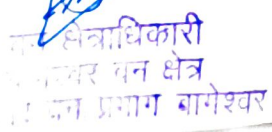 क्षेत्राधिकारी
वन क्षेत्र
प्रभाग बागेश्वर